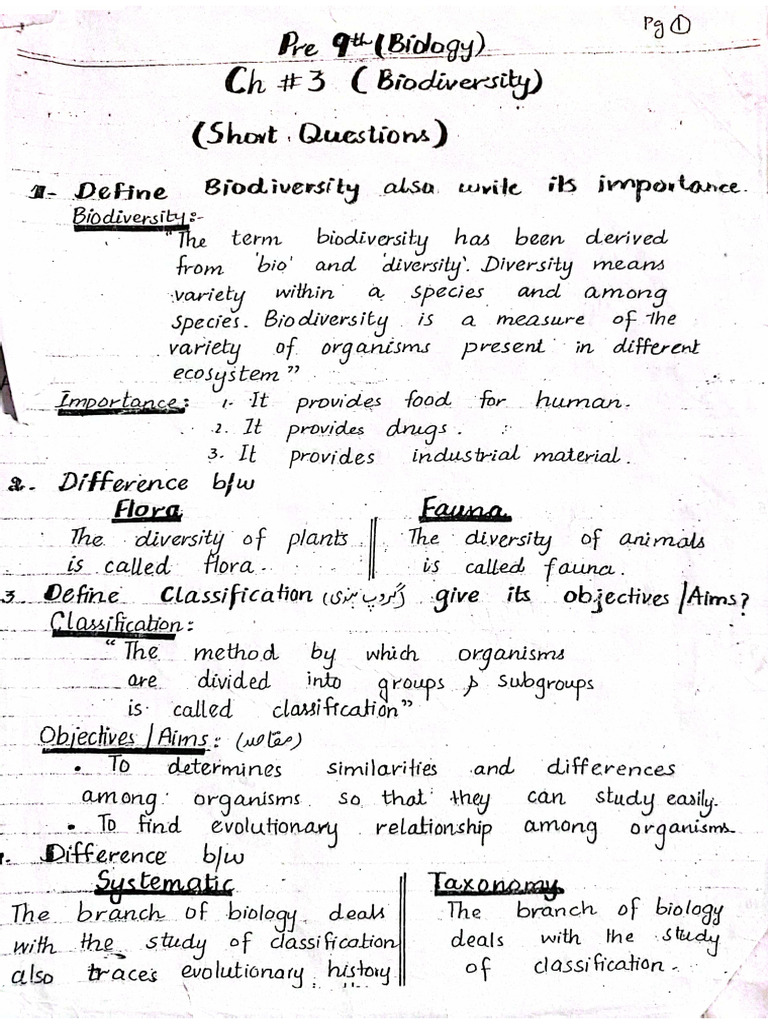 Pg 1
Pre 9th (Biology)
Ch # 3 ( Biodiversity)
(Short Questions)
1- Define Biodiversity also write its importance.
Biodiversity:-
"The term biodiversity has been derived
from 'bio' and 'diversity'. Diversity means
variety within a species and among
species. Biodiversity is a measure of the
variety of organisms present in different
ecosystem"
Importance: 1. It provides food for human.
2. It provides drugs.
3. It provides industrial material.
2. Difference b/w
Flora
The diversity of plants
is called flora.
Fauna
The diversity of animals
is called fauna.
3 Define Classification (گروپ بندی) give its objectives/Aims?
Classification:
"The method by which organisms
are divided into groups & subgroups
is called classification"
Objectives/Aims: (مقاصد)
• To determines similarities and differences
among organisms so that they can study easily.
• To find evolutionary relationship among organisms.
Difference b/w
Systematic
The branch of biology deals
with the study of classification
also traces evolutionary history
Taxonomy
The branch of biology
deals with the study
of classification.